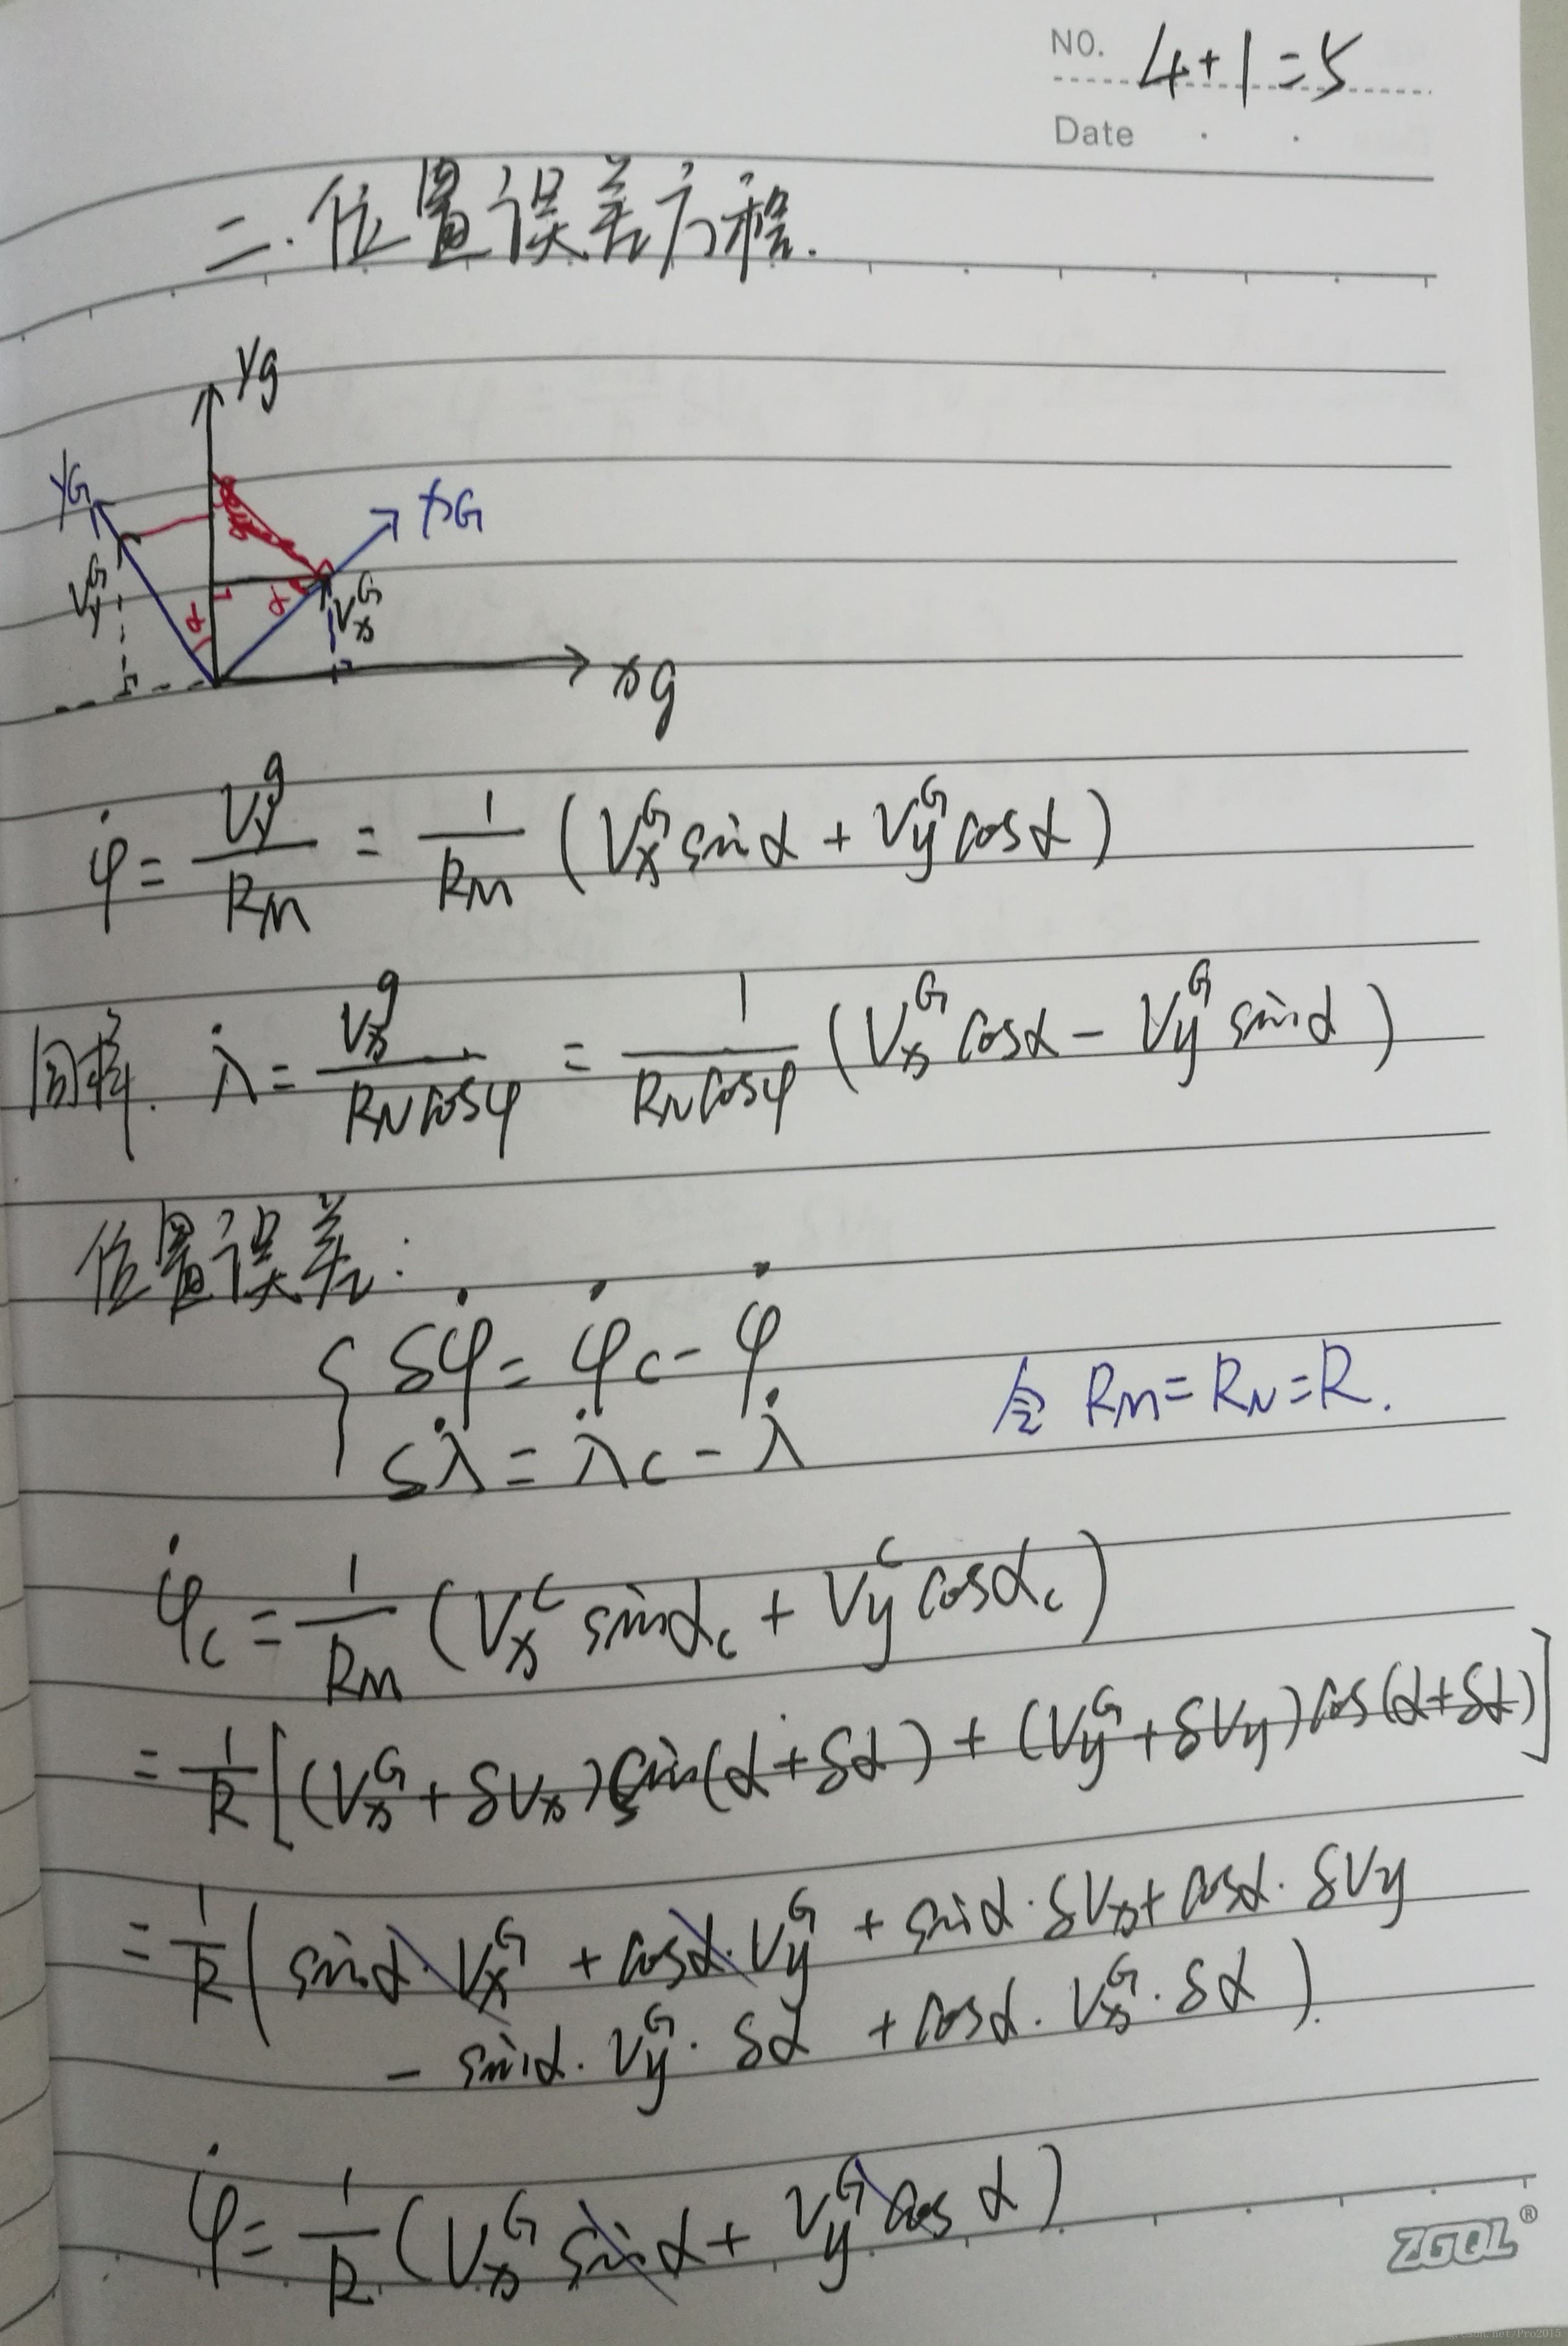 NO. 4+1=5
Date
二.位置误差方程.
yg
yG
xG
VyG
α
α
VxG
xg
φ̇ = Vyg / RM = 1/RM (VxG sinα + VyG cosα)
同样. λ̇ = Vxg / RNcosφ = 1/RNcosφ (VxG cosα - VyG sinα)
位置误差:
{ δφ̇ = φ̇c - φ̇
δλ̇ = λ̇c - λ̇
令 RM = RN = R.
φ̇c = 1/RM (Vxc sinαc + Vyc cosαc)
= 1/R [(VxG + δVx) sin(α+δα) + (VyG + δVy) cos(α+δα)]
= 1/R ( sinα · VxG + cosα · VyG + sinα · δVx + cosα · δVy
- sinα · VyG · δα + cosα · VxG · δα ).
φ̇ = 1/R (VxG sinα + VyG cosα)
ZGQL®